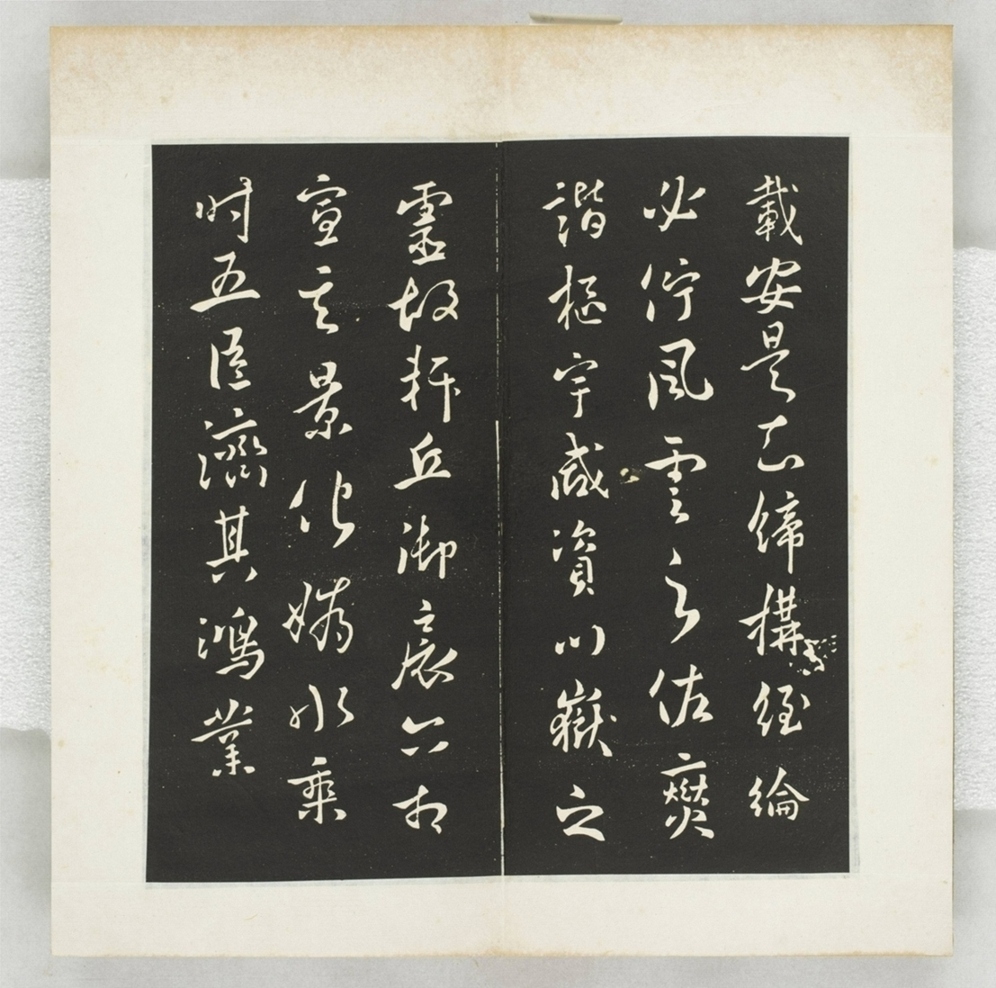 載安是知締構經綸
必佇風雲之佐燮
諧樞宇咸資川嶽之
靈故軒丘御扆六相
宣其景化嬀水乘
時五臣濟其鴻業